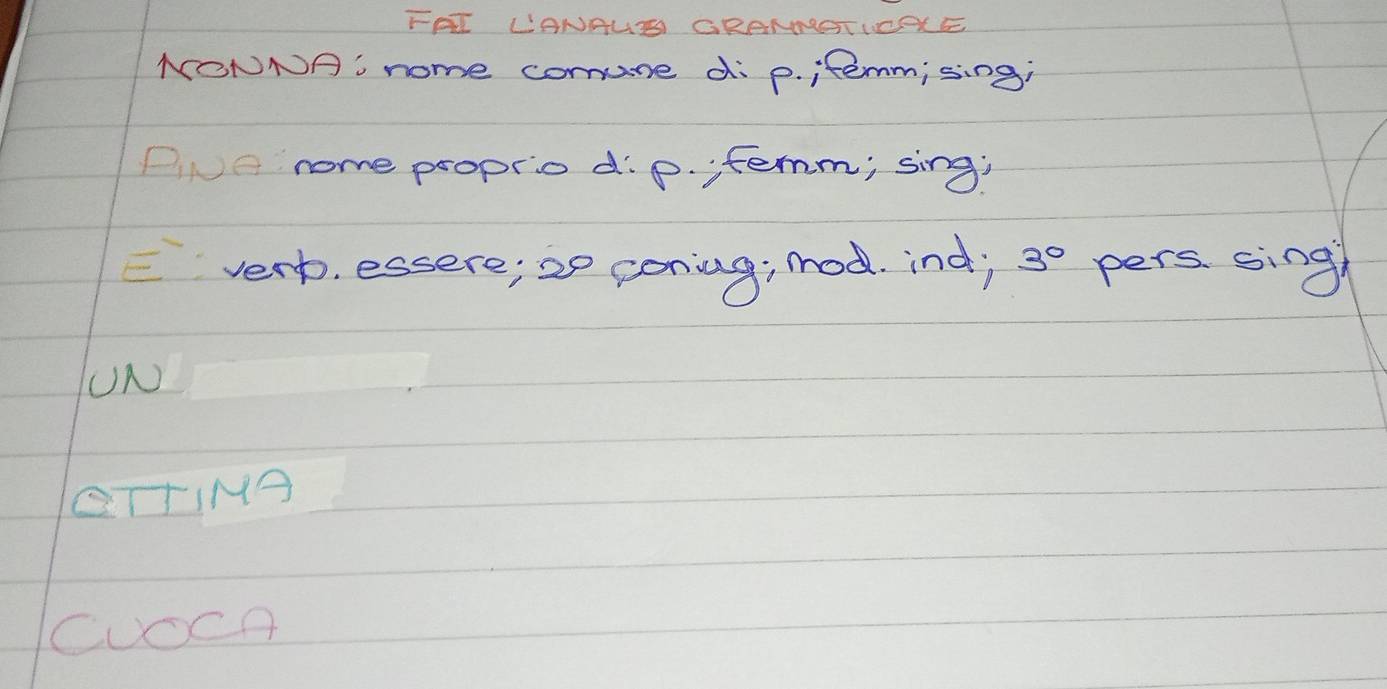 FAI L'ANALISI GRAMMATICALE
NONNA: nome comune di p.; femm; sing;
PINA: nome proprio di p.; femm; sing;
E`: verb. essere; 2° coniug; mod. ind; 3° pers. sing;
UN'
OTTIMA
CUOCA